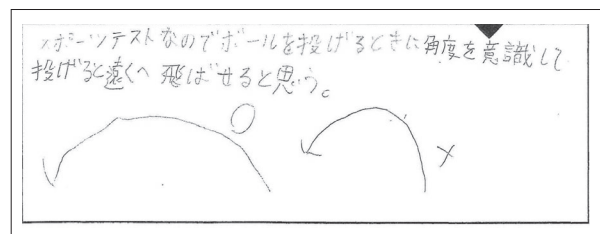 スポーツテストなのでボールを投げるときに角度を意識して
投げると遠くへ飛ばせると思う。